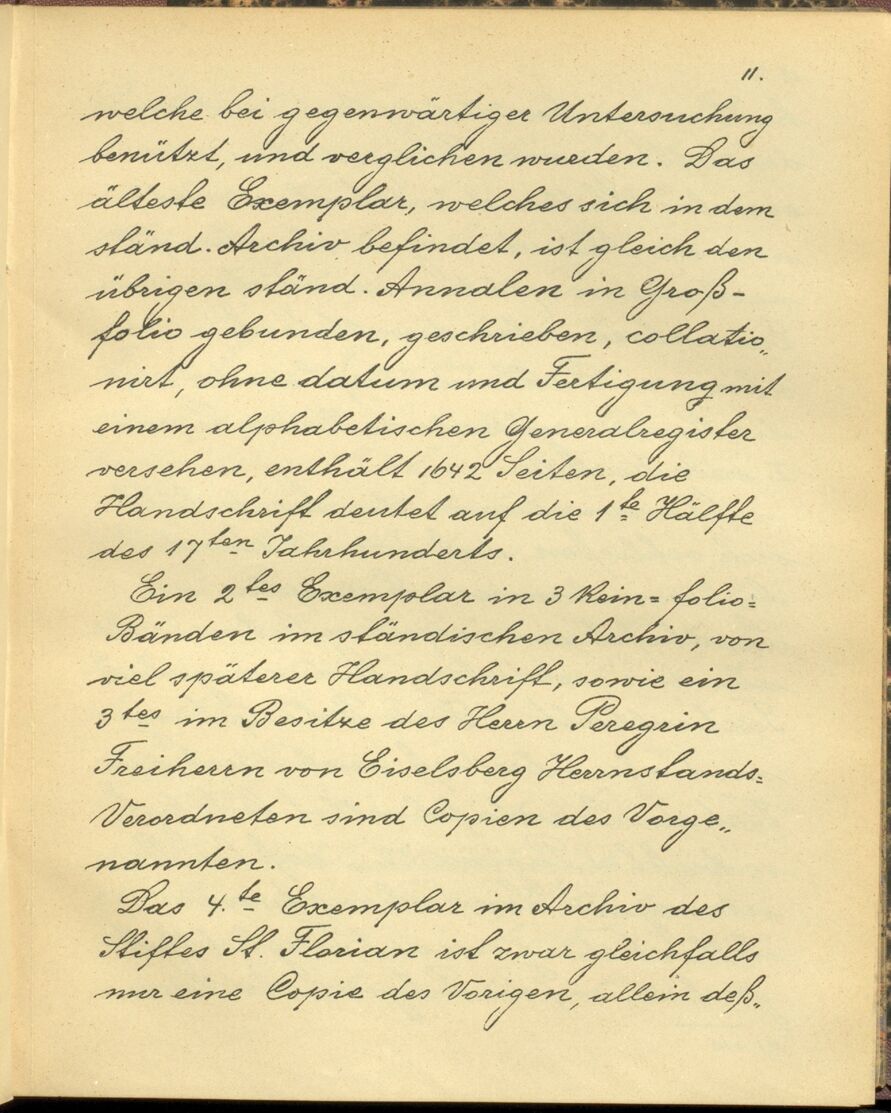 11.
welche bei gegenwärtiger Untersuchung
benützt, und verglichen wurden. Das
älteste Exemplar, welches sich in dem
ständ. Archiv befindet, ist gleich den
übrigen ständ. Annalen in Groß-
folio gebunden, geschrieben, collatio„
nirt, ohne datum und Fertigung mit
einem alphabetischen Generalregister
versehen, enthält 1642 Seiten, die
Handschrift deutet auf die 1te Hälfte
des 17ten Jahrhunderts.
Ein 2tes Exemplar in 3 Klein= folio=
Bänden im ständischen Archiv, von
viel späterer Handschrift, sowie ein
3tes im Besitze des Herrn Peregrin
Freiherrn von Eiselsberg Herrnstands=
Verordneten sind Copien des Vorge„
nannten.
Das 4.te Exemplar im Archiv des
Stiftes St. Florian ist zwar gleichfalls
nur eine Copie des Vorigen, allein deß„